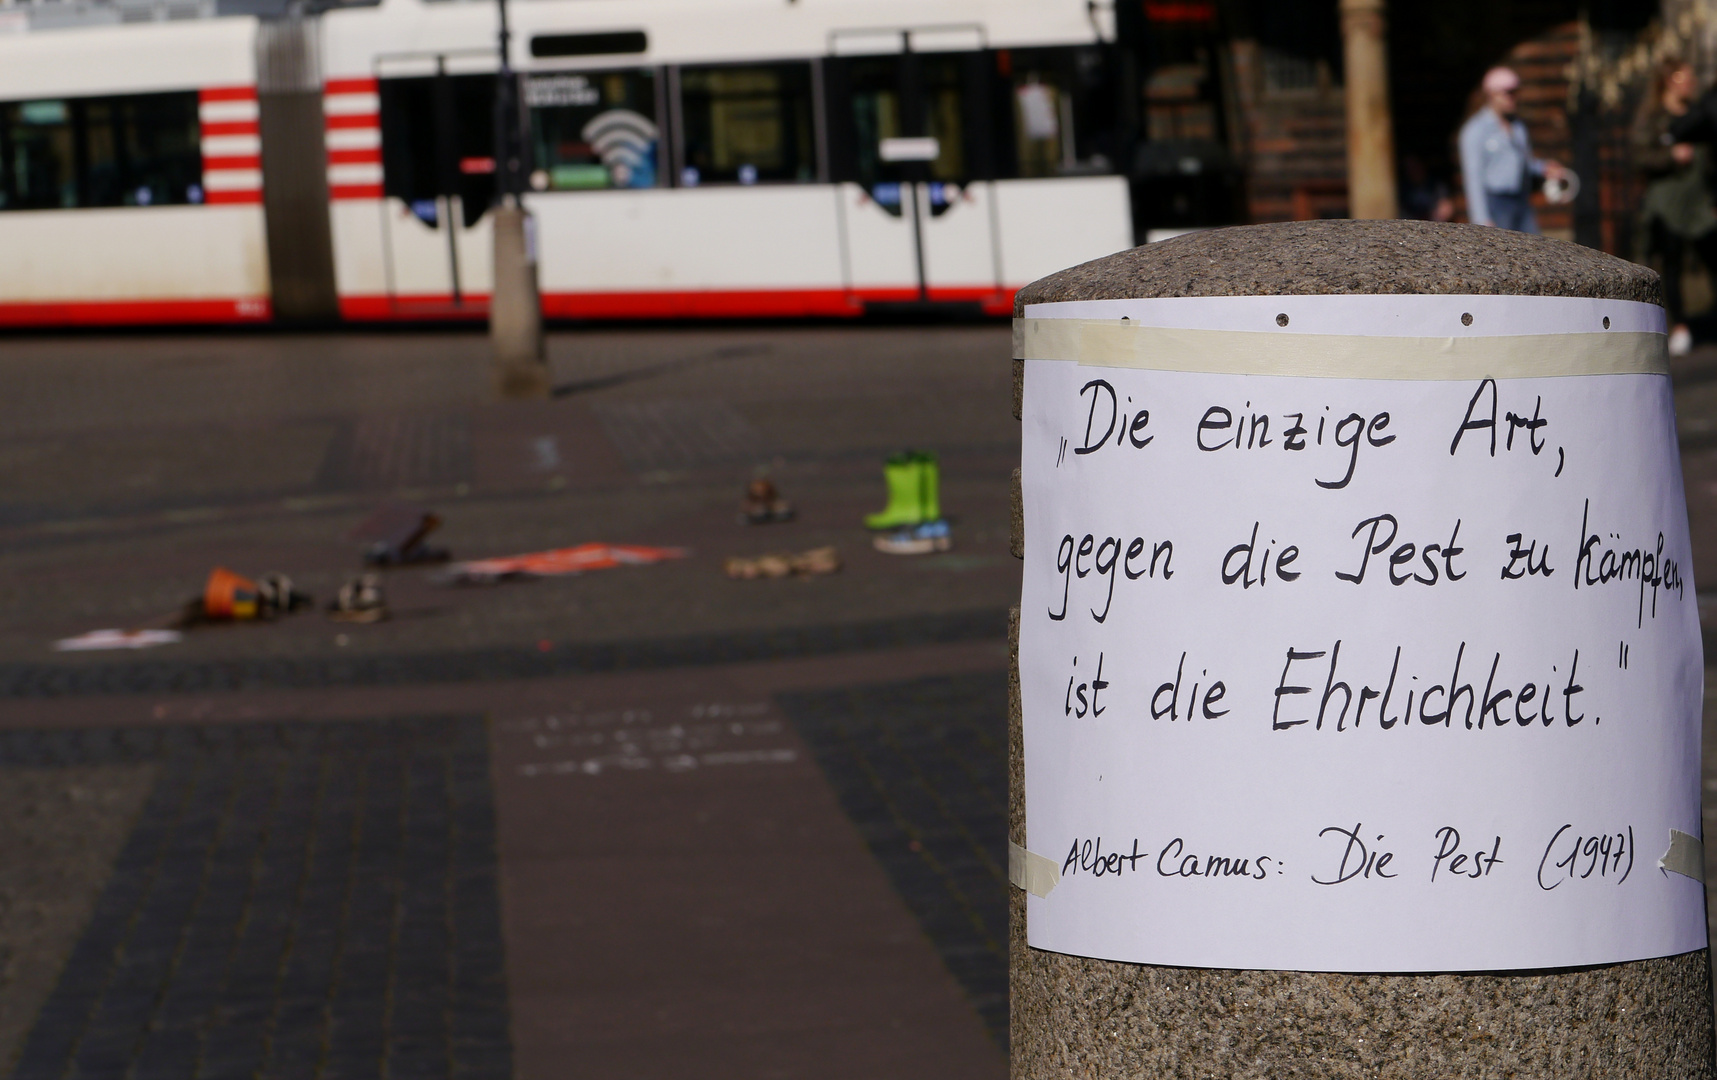 „Die einzige Art,
gegen die Pest zu kämpfen,
ist die Ehrlichkeit."
Albert Camus: Die Pest (1947)